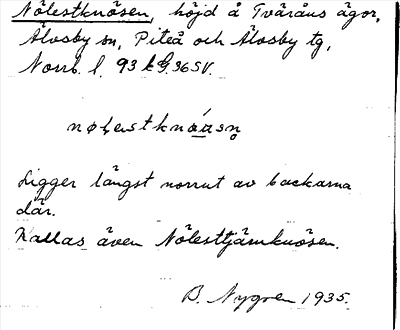 Nölestknösen, höjd å Tväråns ägor,
Älvsby sn, Piteå och Älvsby tg,
Norrb. l. 93 k G. 36 SV.
Ligger längst norrut av backarna
där.
Kallas även Nölesttjärnknösen.
B. Nygren 1935.